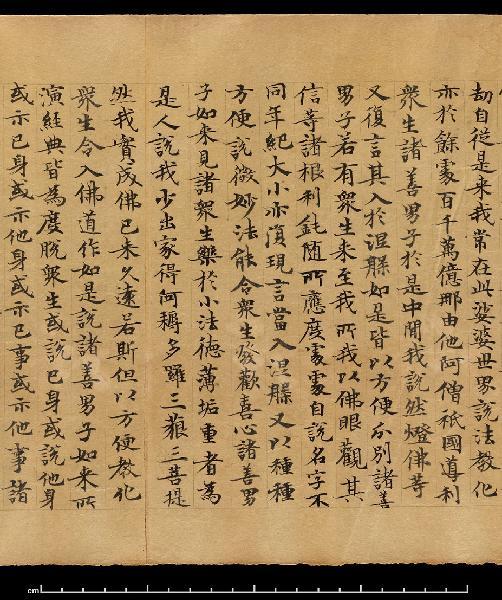 劫自從是來我常在此娑婆世界說法教化
亦於餘處百千萬億那由他阿僧祇國導利
衆生諸善男子於是中閒我說然燈佛等
又復言其入於涅槃如是皆以方便分別諸善
男子若有衆生來至我所我以佛眼觀其
信等諸根利鈍随所應度處處自說名字不
同年紀大小亦復現言當入涅槃又以種種
方便說微妙法能令衆生發歡喜心諸善男
子如來見諸衆生樂於小法德薄垢重者為
是人說我少出家得阿耨多羅三藐三菩提
然我實成佛已來久遠若斯但以方便教化
衆生令入佛道作如是說諸善男子如來所
演經典皆為度脫衆生或說己身或說他身
或示己身或示他身或示己事或示他事諸
cm